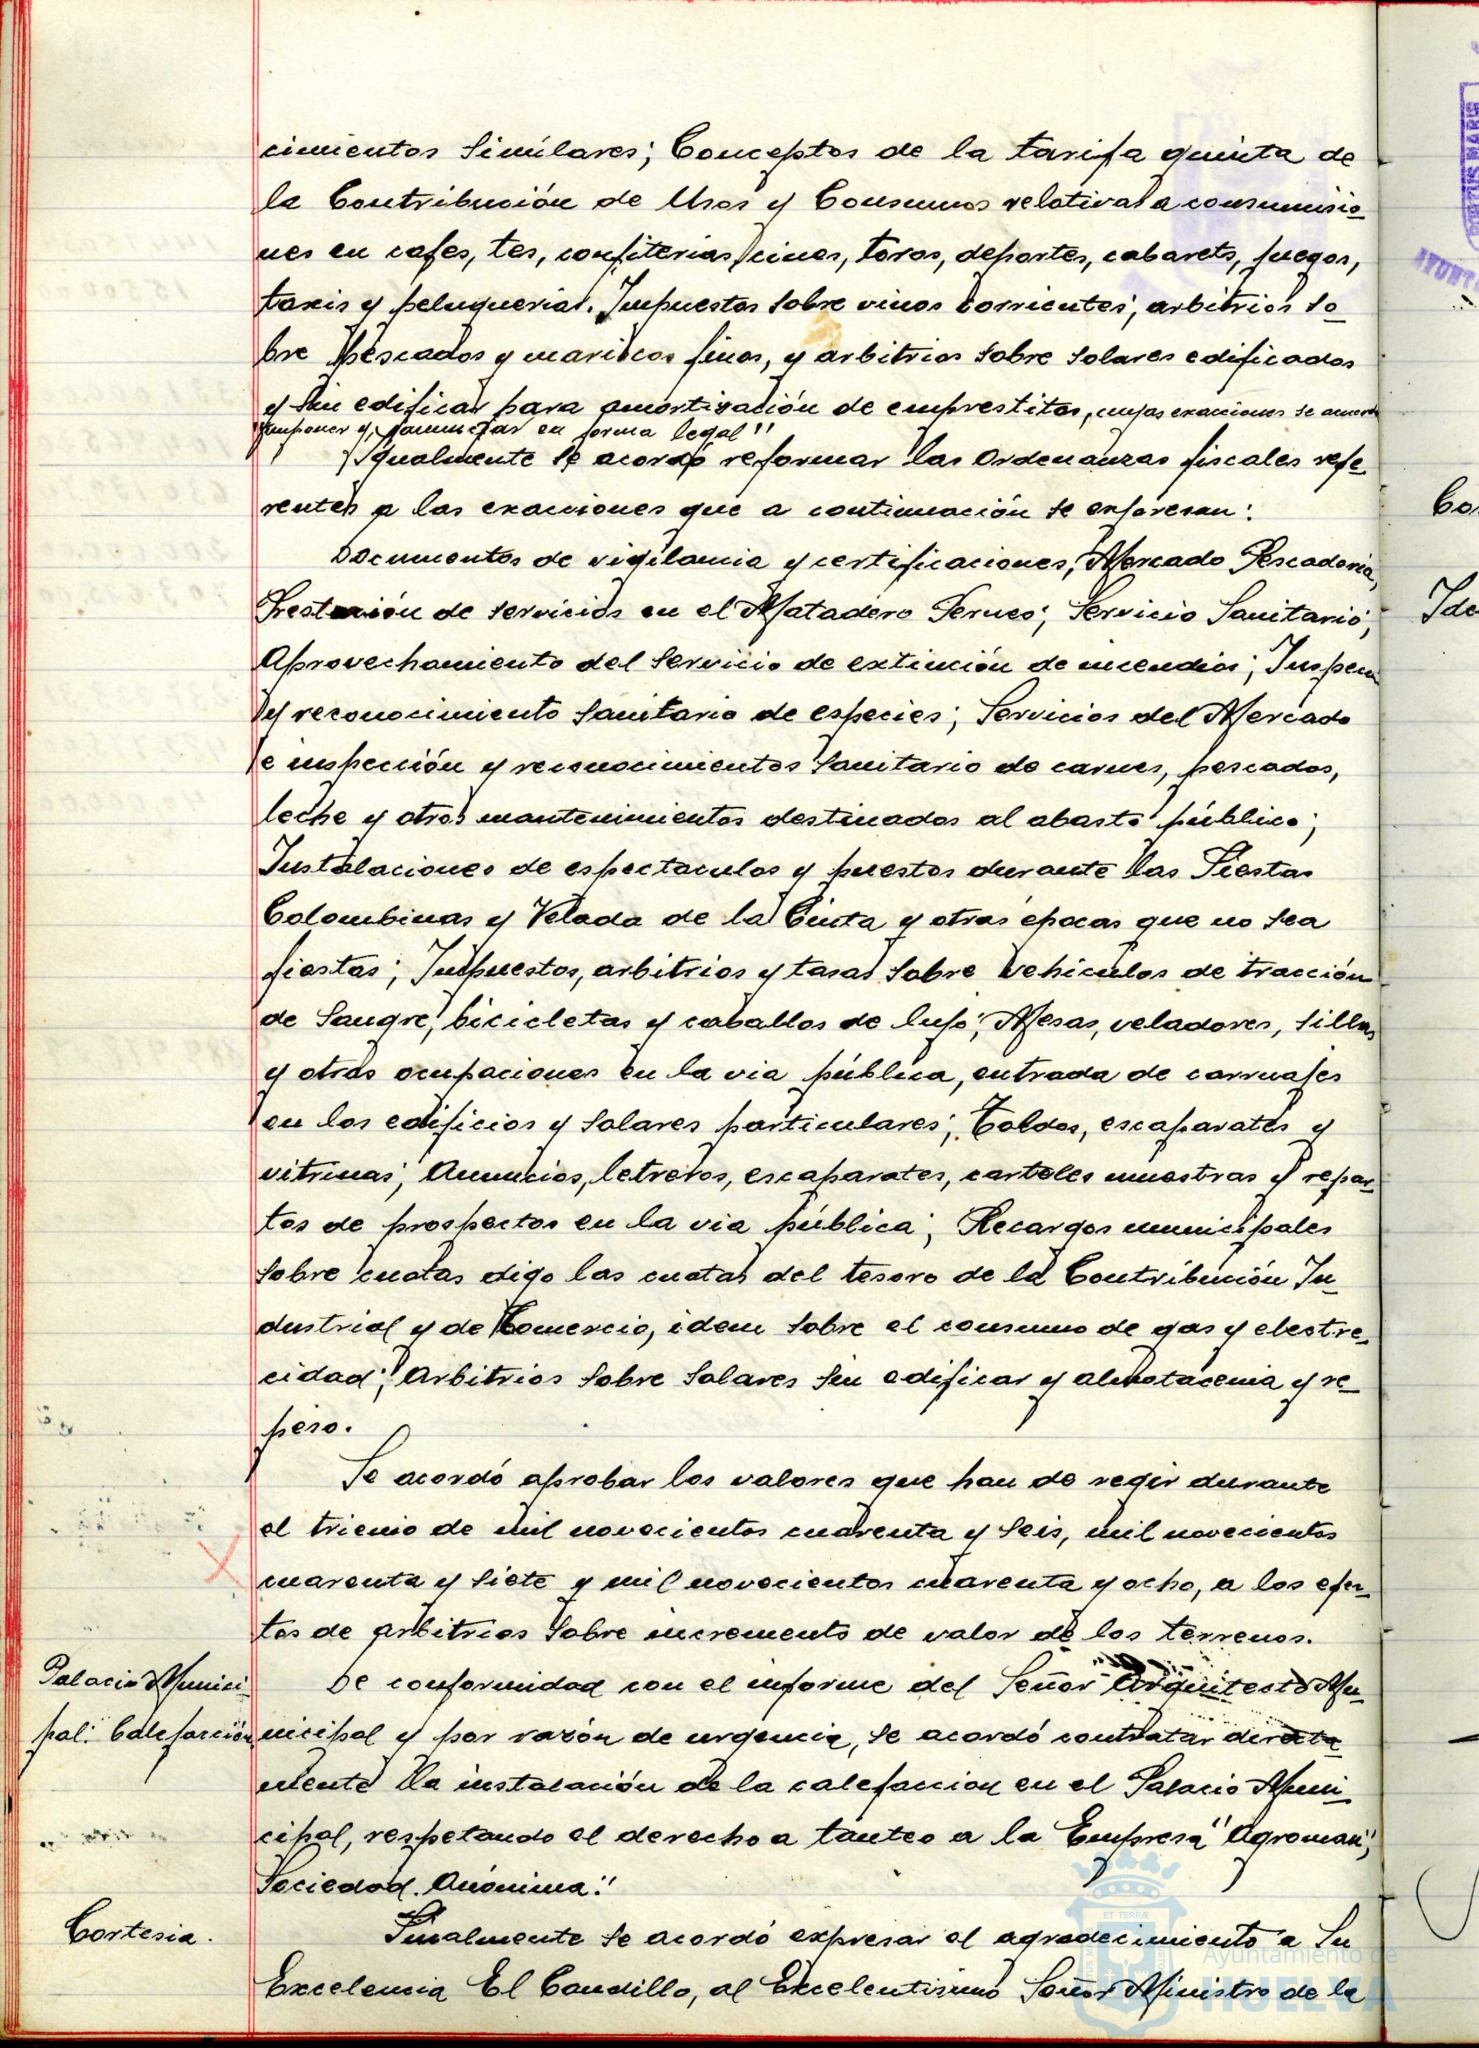 cimientos similares; Conceptos de la tarifa quinta de
la Contribución de Usos y Consumos relativas a consumisio-
nes en cafes, tes, confiterias, cines, toros, deportes, cabarets, juegos,
taxis y peluquerias. Impuestos sobre vinos corrientes; arbitrios so-
bre pescados y mariscos finos, y arbitrios sobre solares edificados
y sin edificar para amortización de emprestitos, cuyas exacciones se acuerda
imponer y, tramitar en forma legal"
Igualmente se acordó reformar las Ordenanzas fiscales refe-
rentes a las exacciones que a continuación se expresan:
Documentos de vigilancia y certificaciones; Mercado Pescaderia,
Prestación de servicios en el Matadero Perneo; Servicio Sanitario;
Aprovechamiento del servicio de extinción de incendios; Inspección
y reconocimiento sanitario de especies; Servicios del Mercado
e inspección y reconocimientos sanitario de carnes, pescados,
leche y otros mantenimientos destinados al abasto público;
Instalaciones de espectaculos y puestos durante las Fiestas
Colombinas y Velada de la Cinta y otras épocas que no sea
fiestas; Impuestos, arbitrios y tasas sobre vehículos de tracción
de sangre, bicicletas y caballos de lujo; Mesas, veladores, sillas
y otras ocupaciones en la via pública, entrada de carruajes
en los edificios y solares particulares; Toldos, escaparates y
vitrinas; Anuncios, letreros, escaparates, carteles muestras y repar-
tos de prospectos en la via pública; Recargos municipales
sobre cuotas digo las cuotas del tesoro de la Contribución In-
dustrial y de Comercio, idem sobre el consumo de gas y electre-
cidad; Arbitrios sobre solares sin edificar y almotacenia y re-
peso.
Se acordó aprobar los valores que han de regir durante
el trienio de mil novecientos cuarenta y seis, mil novecientos
cuarenta y siete y mil novecientos cuarenta y ocho, a los efec-
tos de arbitrios sobre incremento de valor de los terrenos.
Palacio Munici-
pal: Calefacción
De conformidad con el informe del Señor Arquitecto Mu-
nicipal y por razón de urgencia, se acordó contratar directa-
mente la instalación de la calefaccion en el Palacio Muni-
cipal, respetando el derecho a tanteo a la Empresa "Agroman",
Sociedad Anónima."
Cortesia.
Finalmente se acordó expresar el agradecimiento a Su
Excelencia El Caudillo, al Excelentisimo Señor Ministro de la
Ayuntamiento de
HUELVA